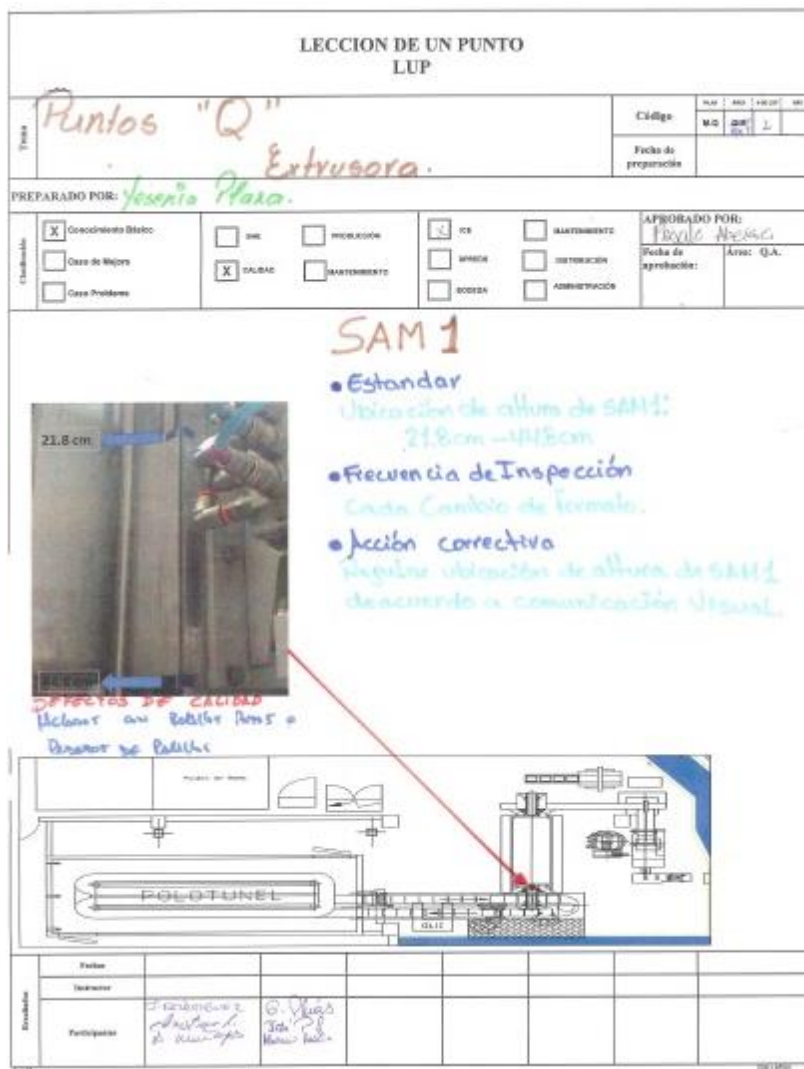 LECCION DE UN PUNTO
LUP
Tema
Puntos "Q"
Extrusora.
Código
M.Q
Fecha de preparación
PREPARADO POR: Yesenia Plaza.
Clasificación
X Conocimiento Básico
Caso de Mejora
Caso Problema
SHE
PRODUCCIÓN
X CALIDAD
MANTENIMIENTO
X ICE
MANTENIMIENTO
DISTRIBUCIÓN
BODEGA
ADMINISTRACIÓN
APROBADO POR:
Fecha de aprobación:
Área: Q.A.
SAM 1
• Estandar
Ubicación de altura de SAM1:
21.8cm - 44.8cm
• Frecuencia de Inspección
Cada Cambio de formato.
• Acción correctiva
Regular ubicación de altura de SAM1
deacuerdo a comunicación Visual.
21.8 cm
DEFECTOS DE CALIDAD
POLOTUNEL
Resultados
Fechas
Instructor
Participantes